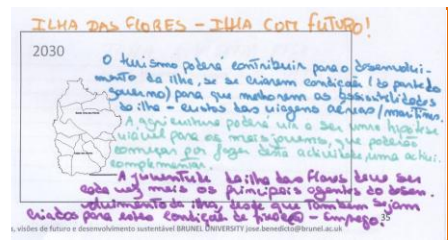 ILHA DAS FLORES – ILHA COM FUTURO!
2030
O turismo poderá contribuir para o desenvolvi-
mento da ilha, se se criarem condições (da parte do
governo) para que melhorem as acessibilidades
da ilha – custos das viagens aéreas/marítimas.
A agricultura poderá vir a ser uma hipótese
viável para os mais jovens, que poderão
começar por fazer desta actividade, uma activi.
complementar.
A juventude da ilha das Flores deve ser
cada vez mais os principais agentes do desen.
volvimento da ilha, desde que também sejam
criadas para estes condições de fixação – Emprego!
35
, visões de futuro e desenvolvimento sustentável BRUNEL UNIVERSITY jose.benedicto@brunel.ac.uk